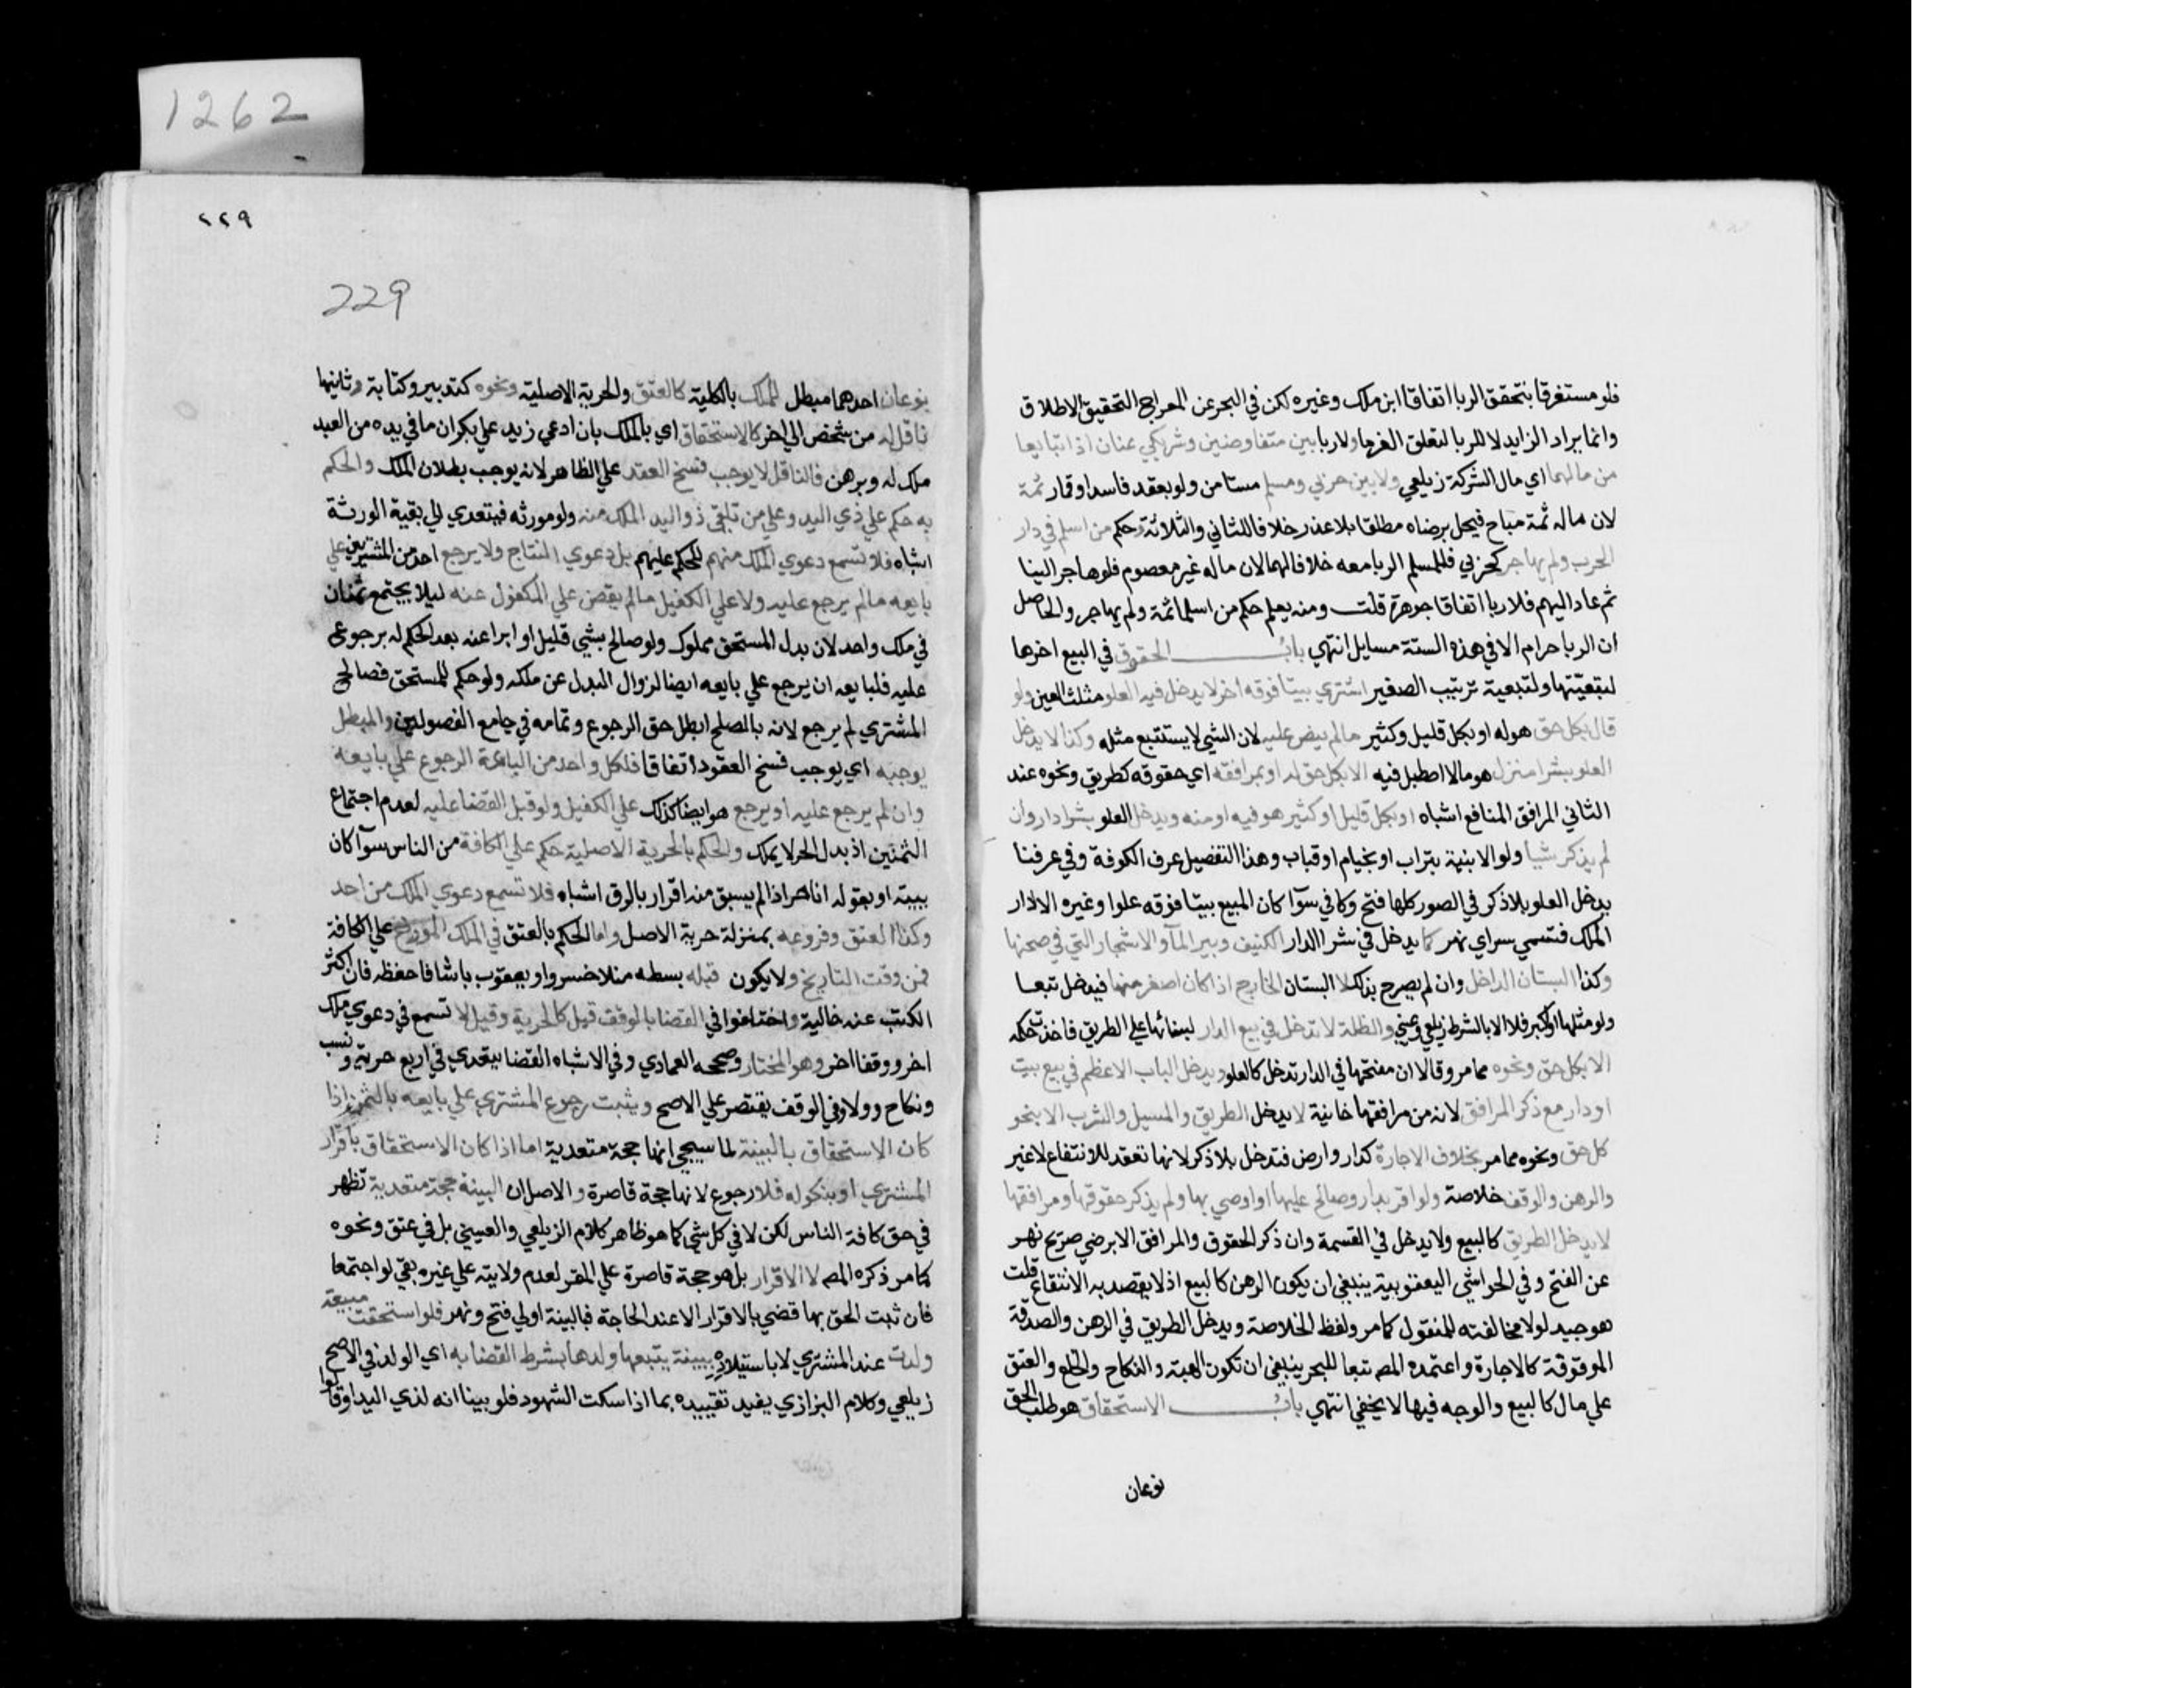 1262
فلو مستغرقا بتحقق الربا اتفاقا ابن ملك وغيره لكن في البحر عن المعراج التحقيق الاطلاق
وانما يراد الزايد لا للربا لتعلق الغرما ولا ربا بين متفاوضين وشريكي عنان اذا تبايعا
من مالهما اي مال الشركة زيلعي ولا بين حربي ومسلم مستامن ولو بعقد فاسد او قمار ثمة
لان ماله ثمة مباح فيحل برضاه مطلقا بلا عذر خلافا للثاني والثلاثة وحكم من اسلم في دار
الحرب ولم يهاجر كحربي فللمسلم الربا معه خلافا لهما لان ماله غير معصوم فلو هاجر الينا
ثم عاد اليهم فلا ربا اتفاقا جوهرة قلت ومنه يعلم حكم من اسلما ثمة ولم يهاجر والحاصل
ان الربا حرام الا في هذه الستة مسايل انتهي باب الحقوق في البيع اخرها
لتبعيتها ولتبعية ترتيب الصغير اشتري بيتا فوقه اخر لا يدخل فيه العلو مثلث العين ولو
قال بكل حق هو له او بكل قليل وكثير مالم ينص عليه لان الشي لا يستتبع مثله وكذا لا يدخل
العلو بشرا منزل هو مالا اصطبل فيه الا بكل حق له او بمرافقه اي حقوقه كطريق ونحوه عند
الثاني المرافق المنافع اشباه او بكل قليل او كثير هو فيه او منه ويدخل العلو بشرا دار وان
لم يذكر شيا ولو الابنية بتراب او بخيام او قباب وهذا التفصيل عرف الكوفة وفي عرفنا
يدخل العلو بلا ذكر في الصور كلها فتح وكافي سوآ كان المبيع بيتا فوقه علوا وغيره الا دار
الملك فتسمي سراي نهر كما يدخل في شرا الدار الكنيف وبير المآ والاشجار التي في صحنها
وكذا البستان الداخل وان لم يصرح بذلك لا البستان الخارج اذا كان اصغر منها فيدخل تبعا
ولو مثلها او اكبر فلا الا بالشرط زيلعي وعيني والظلة لا تدخل في بيع الدار لبنائها علي الطريق فاخذت حكمه
الا بكل حق ونحوه مما مر وقالا ان مفتحها في الدار تدخل كالعلو ويدخل الباب الاعظم في بيع بيت
او دار مع ذكر المرافق لانه من مرافقها خانية لا يدخل الطريق والمسيل والشرب الا بنحو
كل حق ونحوه مما مر بخلاف الاجارة كدار وارض فتدخل بلا ذكر لانها تعقد للانتفاع لا غير
والرهن والوقف خلاصة ولو اقر بدار وصالح عليها او اوصي بها ولم يذكر حقوقها ومرافقها
لا يدخل الطريق كالبيع ولا يدخل في القسمة وان ذكر الحقوق والمرافق الا برضي صريح نهر
عن الفتح وفي الحواشي اليعقوبية ينبغي ان يكون الرهن كالبيع اذ لا يقصد به الانتفاع قلت
هو جيد لولا مخالفته للمنقول كما مر ولفظ الخلاصة ويدخل الطريق في الرهن والصدقة
الموقوفة كالاجارة واعتمده المصـ تبعا للبحر ينبغي ان تكون الهبة والنكاح والخلع والعتق
علي مال كالبيع والوجه فيها لا يخفي انتهي باب الاستحقاق هو طلب الحق
نوعان
٢٢٩
229
نوعان احدهما مبطل للملك بالكلية كالعتق والحرية الاصلية ونحوه كتدبير وكتابة وثانيها
ناقل له من شخص الي اخر كالاستحقاق اي بالملك بان ادعي زيد علي بكر ان ما في يده من العبد
ملك له وبرهن فالناقل لا يوجب فسخ العقد علي الظاهر لانه يوجب بطلان الملك والحكم
به حكم علي ذي اليد وعلي من تلقي ذو اليد الملك منه ولو مورثه فيتعدي الي بقية الورثة
اشباه فلا تسمع دعوي الملك منهم للحكم عليهم بل دعوي النتاج ولا يرجع احد من المشتريين علي
بايعه مالم يرجع عليه ولا علي الكفيل مالم يقض علي المكفول عنه ليلا يجتمع ثمنان
في ملك واحد لان بدل المستحق مملوك ولو صالح بشي قليل او ابرا عنه بعد الحكم له برجوع
عليه فلبايعه ان يرجع علي بايعه ايضا لزوال البدل عن ملكه ولو حكم للمستحق فصالح
المشتري لم يرجع لانه بالصلح ابطل حق الرجوع وتمامه في جامع الفصولين والمبطل
يوجبه اي يوجب فسخ العقود اتفاقا فلكل واحد من الباعة الرجوع علي بايعه
وان لم يرجع عليه او يرجع هو ايضا كذلك علي الكفيل ولو قبل القضا عليه لعدم اجتماع
الثمنين اذ بدل الحر لا يملك والحكم بالحرية الاصلية حكم علي الكافة من الناس سوآ كان
ببينة او بقوله انا حر اذا لم يسبق منه اقرار بالرق اشباه فلا تسمع دعوي الملك من احد
وكذا العتق وفروعه بمنزلة حرية الاصل واما الحكم بالعتق في الملك المورخ علي الكافة
فمن وقت التاريخ ولا يكون قبله بسطه منلا خسرو ويعقوب باشا فاحفظه فان اكثر
الكتب عنه خالية واختلفوا في القضا بالوقف قيل كالحرية وقيل لا تسمع في دعوي ملك
اخر ووقف اخر وهو المختار وصححه العمادي وفي الاشباه القضا يتعدي في اربع حرية ونسب
ونكاح وولا وفي الوقف يقتصر علي الاصح ويثبت رجوع المشتري علي بايعه بالثمن اذا
كان الاستحقاق بالبينة لما سيجي انها حجة متعدية اما اذا كان الاستحقاق باقرار
المشتري او بنكوله فلا رجوع لانها حجة قاصرة والاصل ان البينة حجة متعدية تظهر
في حق كافة الناس لكن لا في كل شي كما هو ظاهر كلام الزيلعي والعيني بل في عتق ونحوه
كما مر ذكره المصـ لا الاقرار بل هو حجة قاصرة علي المقر لعدم ولايته علي غيره بقي لو اجتمعا
فان ثبت الحق بها قضي بالاقرار الا عند الحاجة فبالبينة اولي فتح ونهر فلو استحقت مبيعة
ولدت عند المشتري لا باستيلاده ببينة يتبعها ولدها بشرط القضا به اي الولد في الاصح
زيلعي وكلام البزازي يفيد تقييده بما اذا سكت الشهود فلو بينا انه لذي اليد او قالوا